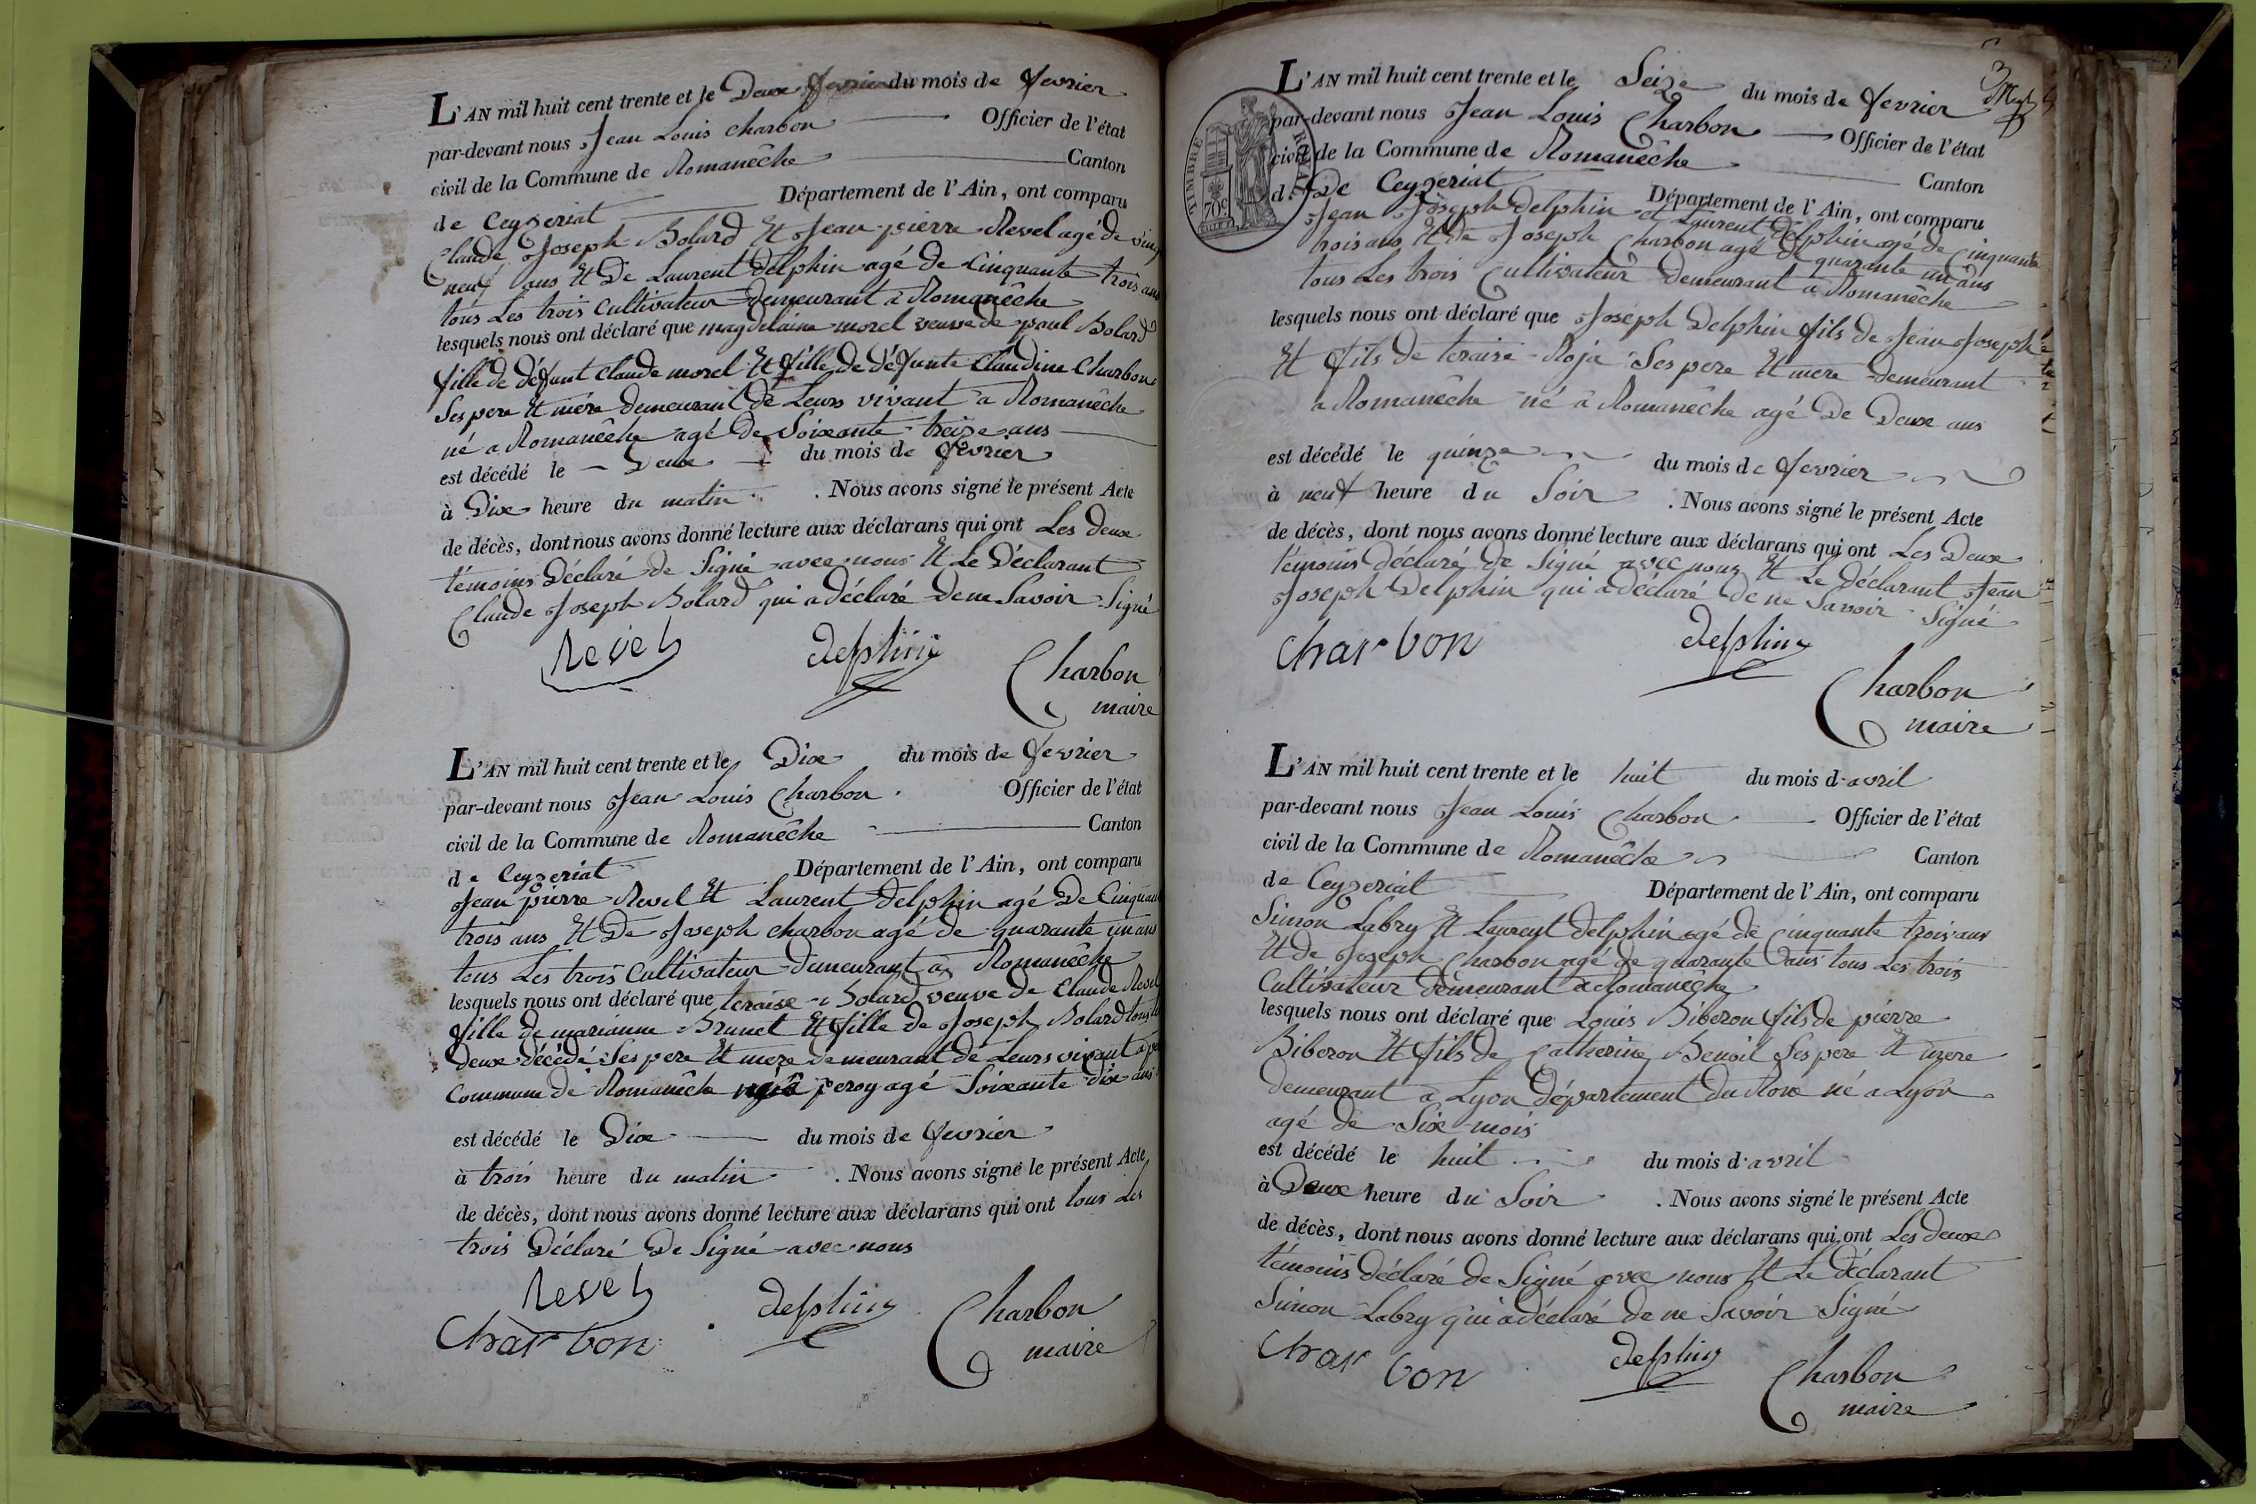 L'AN mil huit cent trente et le Deux fevrier du mois de fevrier
par-devant nous Jean Louis Charbon Officier de l'état
civil de la Commune de Romanêche Canton
de Ceyzeriat Département de l'Ain, ont comparu
Claude Joseph Bolard Et Jean pierre Revel agé de vingt
neuf ans Et De Laurent Delphin agé de Cinquante trois ans
tous Les trois Cultivateur Demeurant a Romanêche
lesquels nous ont déclaré que magdelaine morel veuve de paul Bolard
fille de défunt Claude morel Et fille de défunte Claudine Charbon
Ses pere Et mére demeurant de Leurs vivant a Romanêche
né a Romanêche agé De Soixante treize ans
est décédé le Deux du mois de fevrier
à Dixe heure du matin . Nous avons signé le présent Acte
de décès, dont nous avons donné lecture aux déclarans qui ont Les deux
témoins Déclaré de Signé avec nous Et Le Déclarant
Claude Joseph Bolard qui a déclaré de ne Savoir Signé
Revel delphin Charbon
maire
L'AN mil huit cent trente et le Dixe du mois de fevrier
par-devant nous Jean Louis Charbon . Officier de l'état
civil de la Commune de Romanêche Canton
de Ceyzeriat Département de l'Ain, ont comparu
Jean pierre Revel Et Laurent Delphin agé De Cinquante
trois ans Et De Joseph charbon agé de quarante un ans
tous Les trois Cultivateur Demeurant a Romanêche
lesquels nous ont déclaré que teraise Bolard veuve de Claude Revel
fille de marianne Brunet Et fille de Joseph Bolard tous
Deux décédé Ses pere Et mere demeurant de Leurs vivant a
Commune de Romanêche peroy agé Soixante dix ans
est décédé le Dixe du mois de fevrier
à trois heure du matin . Nous avons signé le présent Acte
de décès, dont nous avons donné lecture aux déclarans qui ont tous Les
trois Déclaré De Signé avec nous
Revel
Charbon delphin Charbon
maire
3
L'AN mil huit cent trente et le Seize du mois de fevrier
par-devant nous Jean Louis Charbon Officier de l'état
civil de la Commune de Romanêche Canton
d De Ceyzeriat Département de l'Ain, ont comparu
TIMBRE ROYAL
70c
Jean Joseph Delphin et Laurent Delphin agé de Cinquante
trois ans Et De Joseph Charbon agé de quarante un ans
tous Les trois Cultivateur Demeurant a Romanêche
lesquels nous ont déclaré que Joseph Delphin fils de Jean Joseph
Et fils de teraise Roja Ses pere Et mere demeurant
a Romanêche né a Romanêche agé De Deux ans
est décédé le quinze du mois de fevrier
à neuf heure du Soir . Nous avons signé le présent Acte
de décès, dont nous avons donné lecture aux déclarans qui ont Les Deux
témoins déclaré de Signé avec nous Et Le déclarant Jean
Joseph Delphin qui a déclaré de ne Savoir Signé
Charbon delphin
Charbon
maire
L'AN mil huit cent trente et le huit du mois d'avril
par-devant nous Jean Louis Charbon Officier de l'état
civil de la Commune de Romanêche Canton
de Ceyzeriat Département de l'Ain, ont comparu
Simon Labry Et Laurent Delphin agé de Cinquante trois ans
Et de Joseph Charbon agé de quarante ans tous Les trois
Cultivateur demeurant a Romanêche
lesquels nous ont déclaré que Louis Biberon fils de pierre
Biberon Et fils de Catherine Benoit Ses pere Et mere
demeurant a Lyon département du Rone né a Lyon
agé de Six mois
est décédé le huit du mois d'avril
à Deux heure du Soir . Nous avons signé le présent Acte
de décès, dont nous avons donné lecture aux déclarans qui ont Les deux
témoins déclaré de Signé avec nous Et Le déclarant
Simon Labry qui a déclaré de ne Savoir Signé
Charbon delphin Charbon
maire